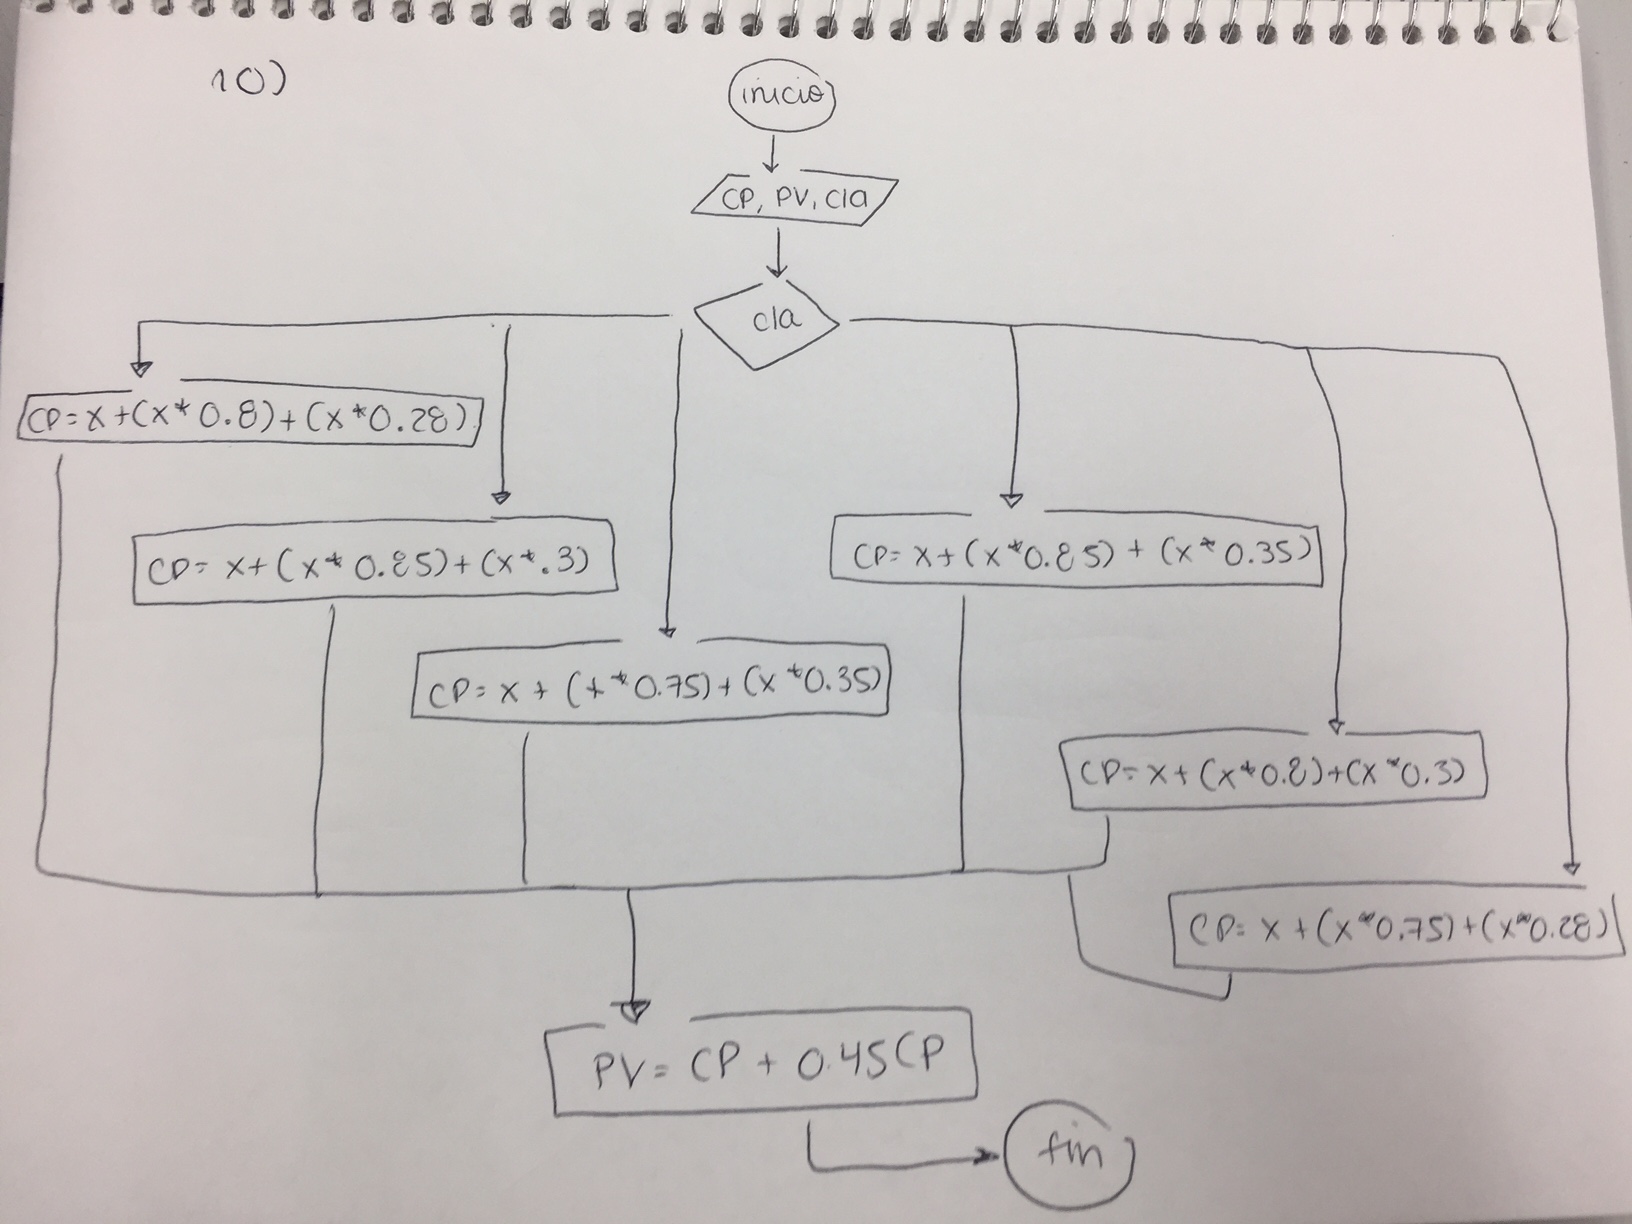 10)
inicio
CP, PV, cla
cla
CP=x+(x*0.8)+(x*0.28)
CP= x+(x*0.85)+(x*.3)
CP= x+(x*0.85) + (x*0.35)
CP= x + (x*0.75)+(x*0.35)
CP= x+(x*0.8)+(x*0.3)
CP= x +(x*0.75)+(x*0.28)
PV= CP + 0.45CP
fin